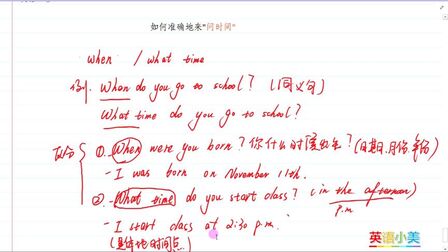 如何准确地来"问时间"
when / what time
例. When do you go to school? (同义句)
What time do you go to school?
区分 ① - When were you born? 你什么时候出生? (日期、月份、年份)
- I was born on November 11th.
② - What time do you start class? (in the afternoon)
p.m
- I start class at 2:30 p.m.
(具体地时间点)
英语小美